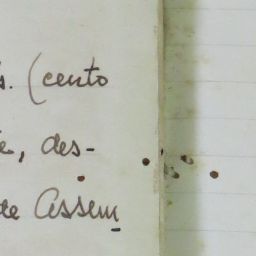 s. (cento
e, des-
de Assem